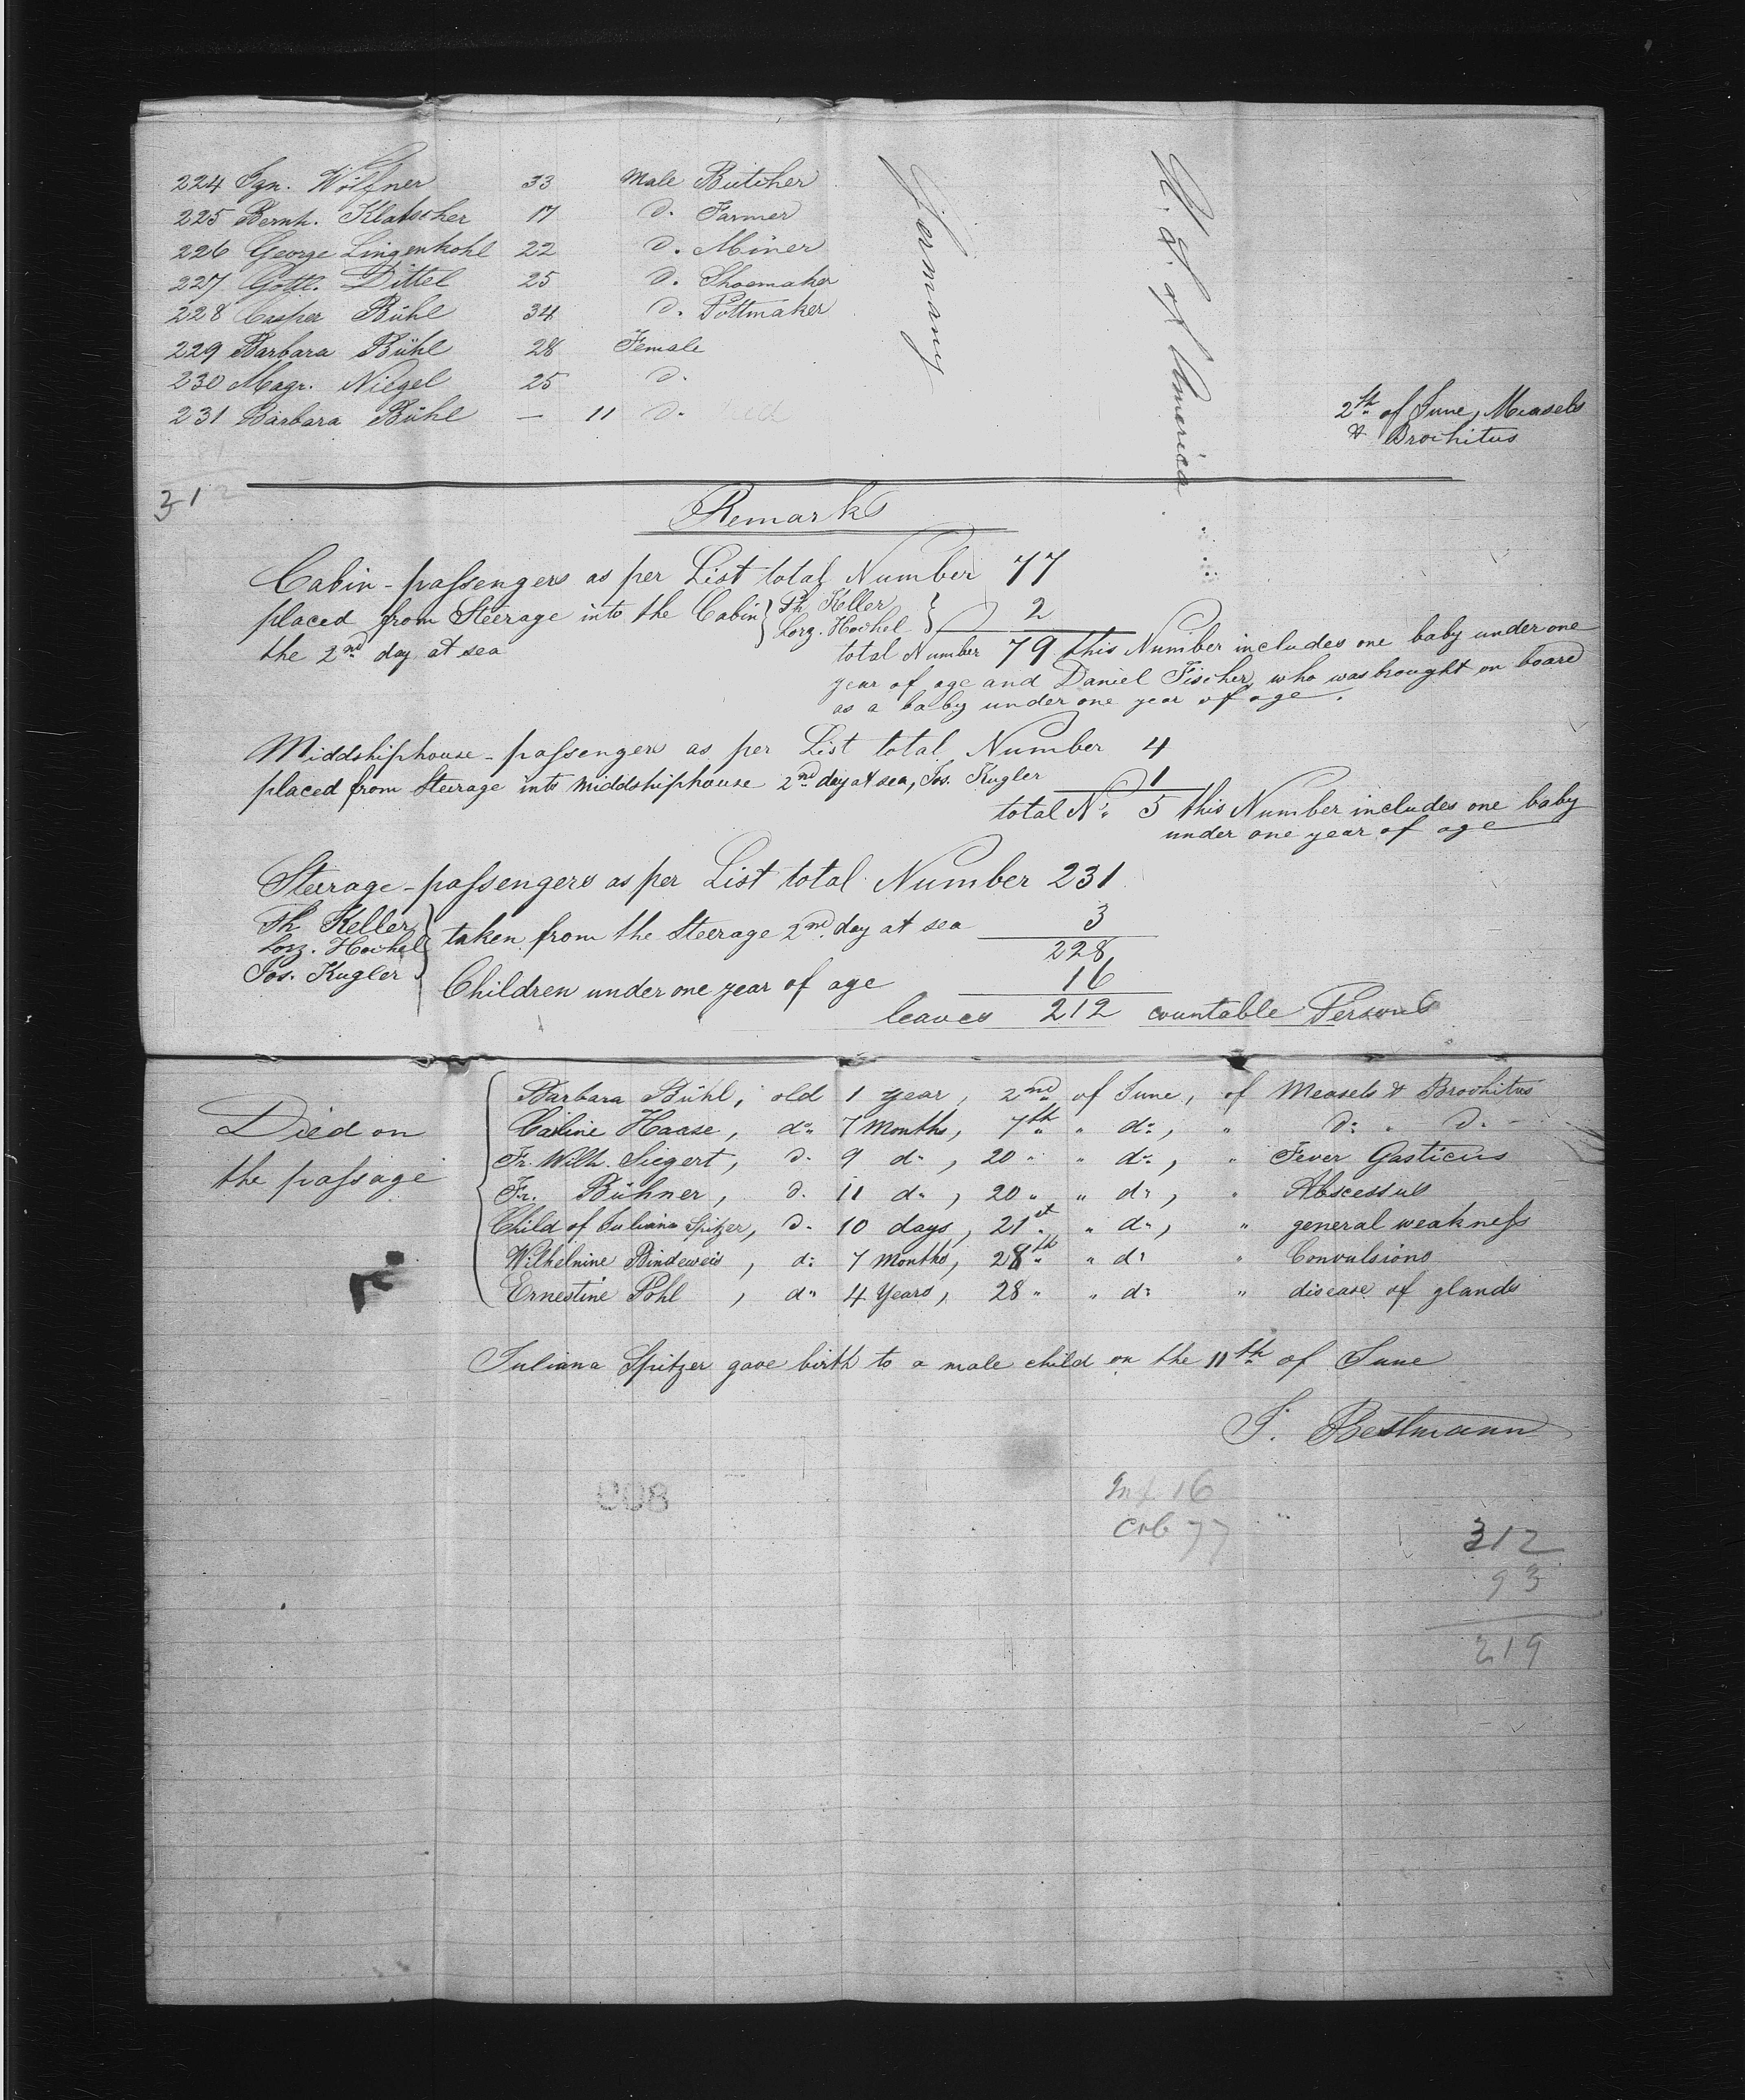 224 Ign. Wölfner 33 Male Butcher
225 Bernh. Klatscher 17 d. Farmer
226 George Lingenkohl 22 d. Miner
227 Gottl. Dittel 25 d. Shoemaker
228 Casper Bühl 34 d. Pottmaker
229 Barbara Bühl 28 Female
230 Magr. Niegel 25 d.
231 Barbara Bühl — 11 d.
Germany
U. S. of America
2th of June, Measels
& Brochitus
312
Remarks
Cabin-passengers as per List total Number 77
placed from Steerage into the Cabin } Th. Keller } 2
the 2nd day at sea Lorz. Hochel
total Number 79 this Number includes one baby under one
year of age and Daniel Fischer, who was brought on board
as a baby under one year of age.
Middshiphouse-passengers as per List total Number 4
placed from Steerage into Middshiphouse 2nd day at sea, Jos. Kugler 1
total No. 5 this Number includes one baby
under one year of age
Steerage-passengers as per List total Number 231
Th. Keller
Lorz. Hochel } taken from the Steerage 2nd day at sea 3
Jos. Kugler 228
Children under one year of age 16
leaves 212 countable Persons
Died on
the passage
Barbara Bühl, old 1 year, 2nd of June, of Measels & Brochitus
Carline Haase, do 7 Months, 7th " do, " d: " d. -
Fr. Wilh. Siegert, d. 9 do, 20 " " do, " Fever Gasticus
Fr. Bühner, d. 11 do, 20 " " do, " Abscessus
Child of Juliana Spitzer, d. 10 days, 21st " do, " general weakness
Wilhelmine Bindeweis, do 7 Months, 28th " do " Convulsions
Ernestine Pohl, do 4 Years, 28 " " do " disease of glands
Juliana Spitzer gave birth to a male child on the 11th of June
J. Bestmann
Inf 16
Cab 77
312
93
219